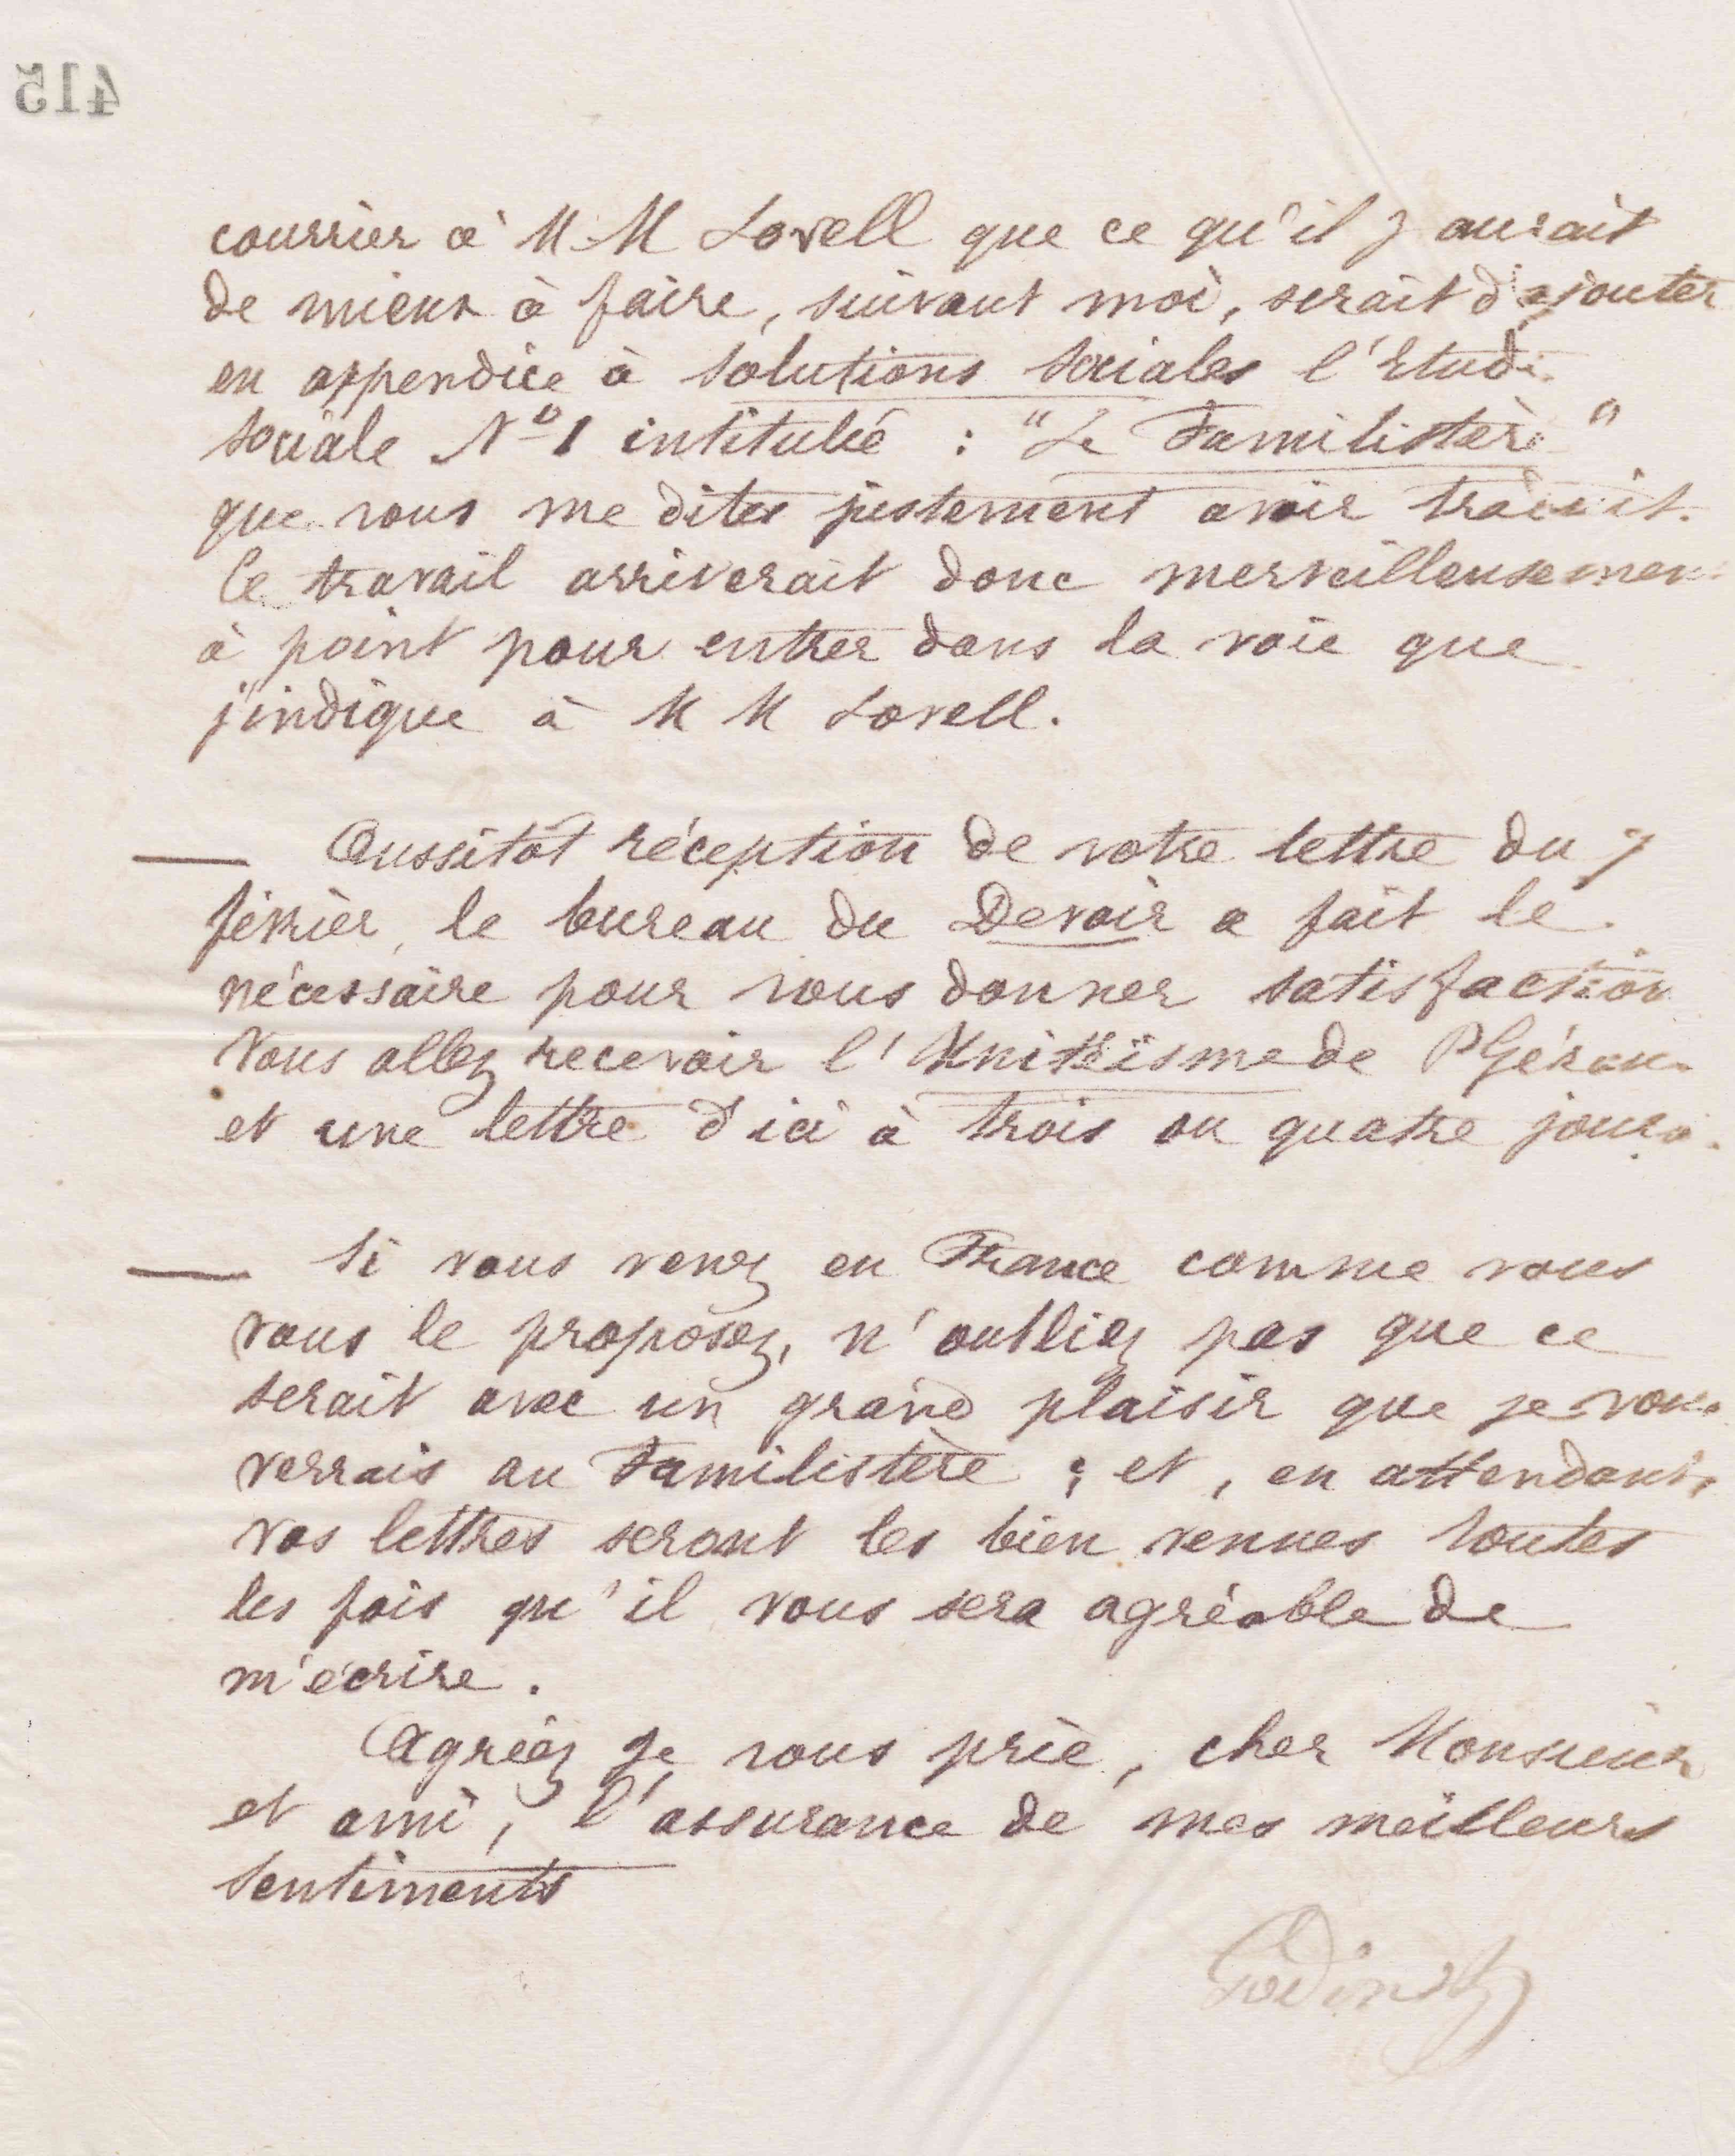 415
courrier à M M Lovell que ce qu'il y aurait
de mieux à faire, suivant moi, serait d'ajouter
en appendice à Solutions sociales l'Etude
sociale No 1 intitulée : "Le Familistère"
que vous me dites justement avoir traduit.
Ce travail arriverait donc merveilleusement
à point pour entrer dans la voie que
j'indique à M M Lovell.
— Aussitôt réception de votre lettre du 7
février, le bureau du Devoir a fait le
nécessaire pour vous donner satisfaction
Vous allez recevoir l'Unitéisme de P
et une lettre d'ici à trois ou quatre jours.
— Si vous venez en France comme vous
vous le proposez, n'oubliez pas que ce
serait avec un grand plaisir que je vous
verrais au Familistère ; et, en attendant,
vos lettres seront les bien venues toutes
les fois qu'il vous sera agréable de
m'écrire.
Agréez je vous prie, cher Monsieur
et ami, l'assurance de mes meilleurs
sentiments
Godin